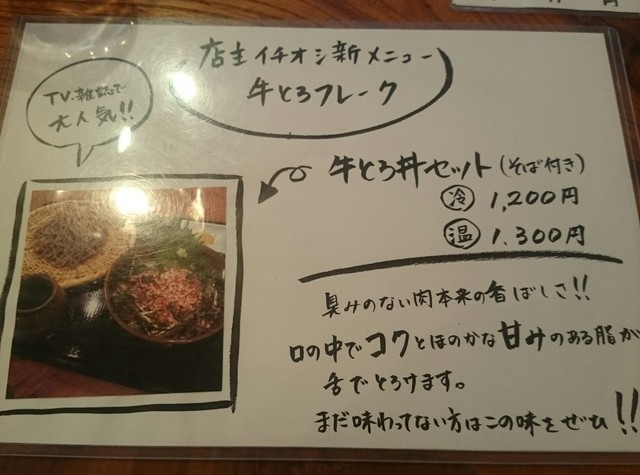 店主イチオシ新メニュー
牛とろフレーク
TV、雑誌で
大人気!!
牛とろ丼セット(そば付き)
冷 1,200円
温 1.300円
臭みのない肉本来の香ばしさ!!
口の中でコクとほのかな甘みのある脂が
舌でとろけます。
まだ味わってない方はこの味をぜひ!!
円